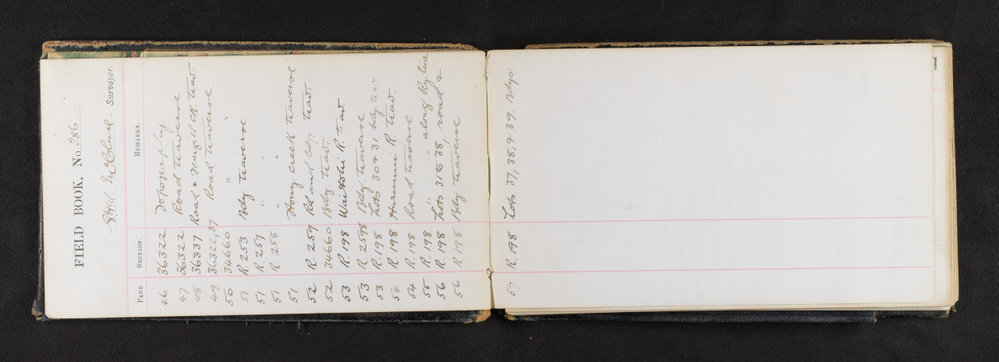 FIELD BOOK, No. 386
McClure Surveyor.
PAGE SECTION. REMARKS.
46 36322 Topography
47 36322 Road traverse
48 36337 Road & ck trav.
49 36322,37 Road traverse
50 34660 " "
51 R 253 Bdy traverse
51 R 257 " "
51 R 258 " "
51 Stony Creek traverse
52 R 259 Rd and bdy trav.
52 34660 Bdy trav.
53 R 198 Waitohi R. trav
53 R 2598 Bdy traverse
53 R 198 Lots 30 & 31 bdy trav
54 R 198 Hurunui R. trav.
54 R 198 Road traverse
55 R 198 " " along Ry line
56 R 198 Lots 31 to 38 road &
56 R 198 Bdy traverse
57 R 198 Lots 37, 38, & 39 Bdys.
1